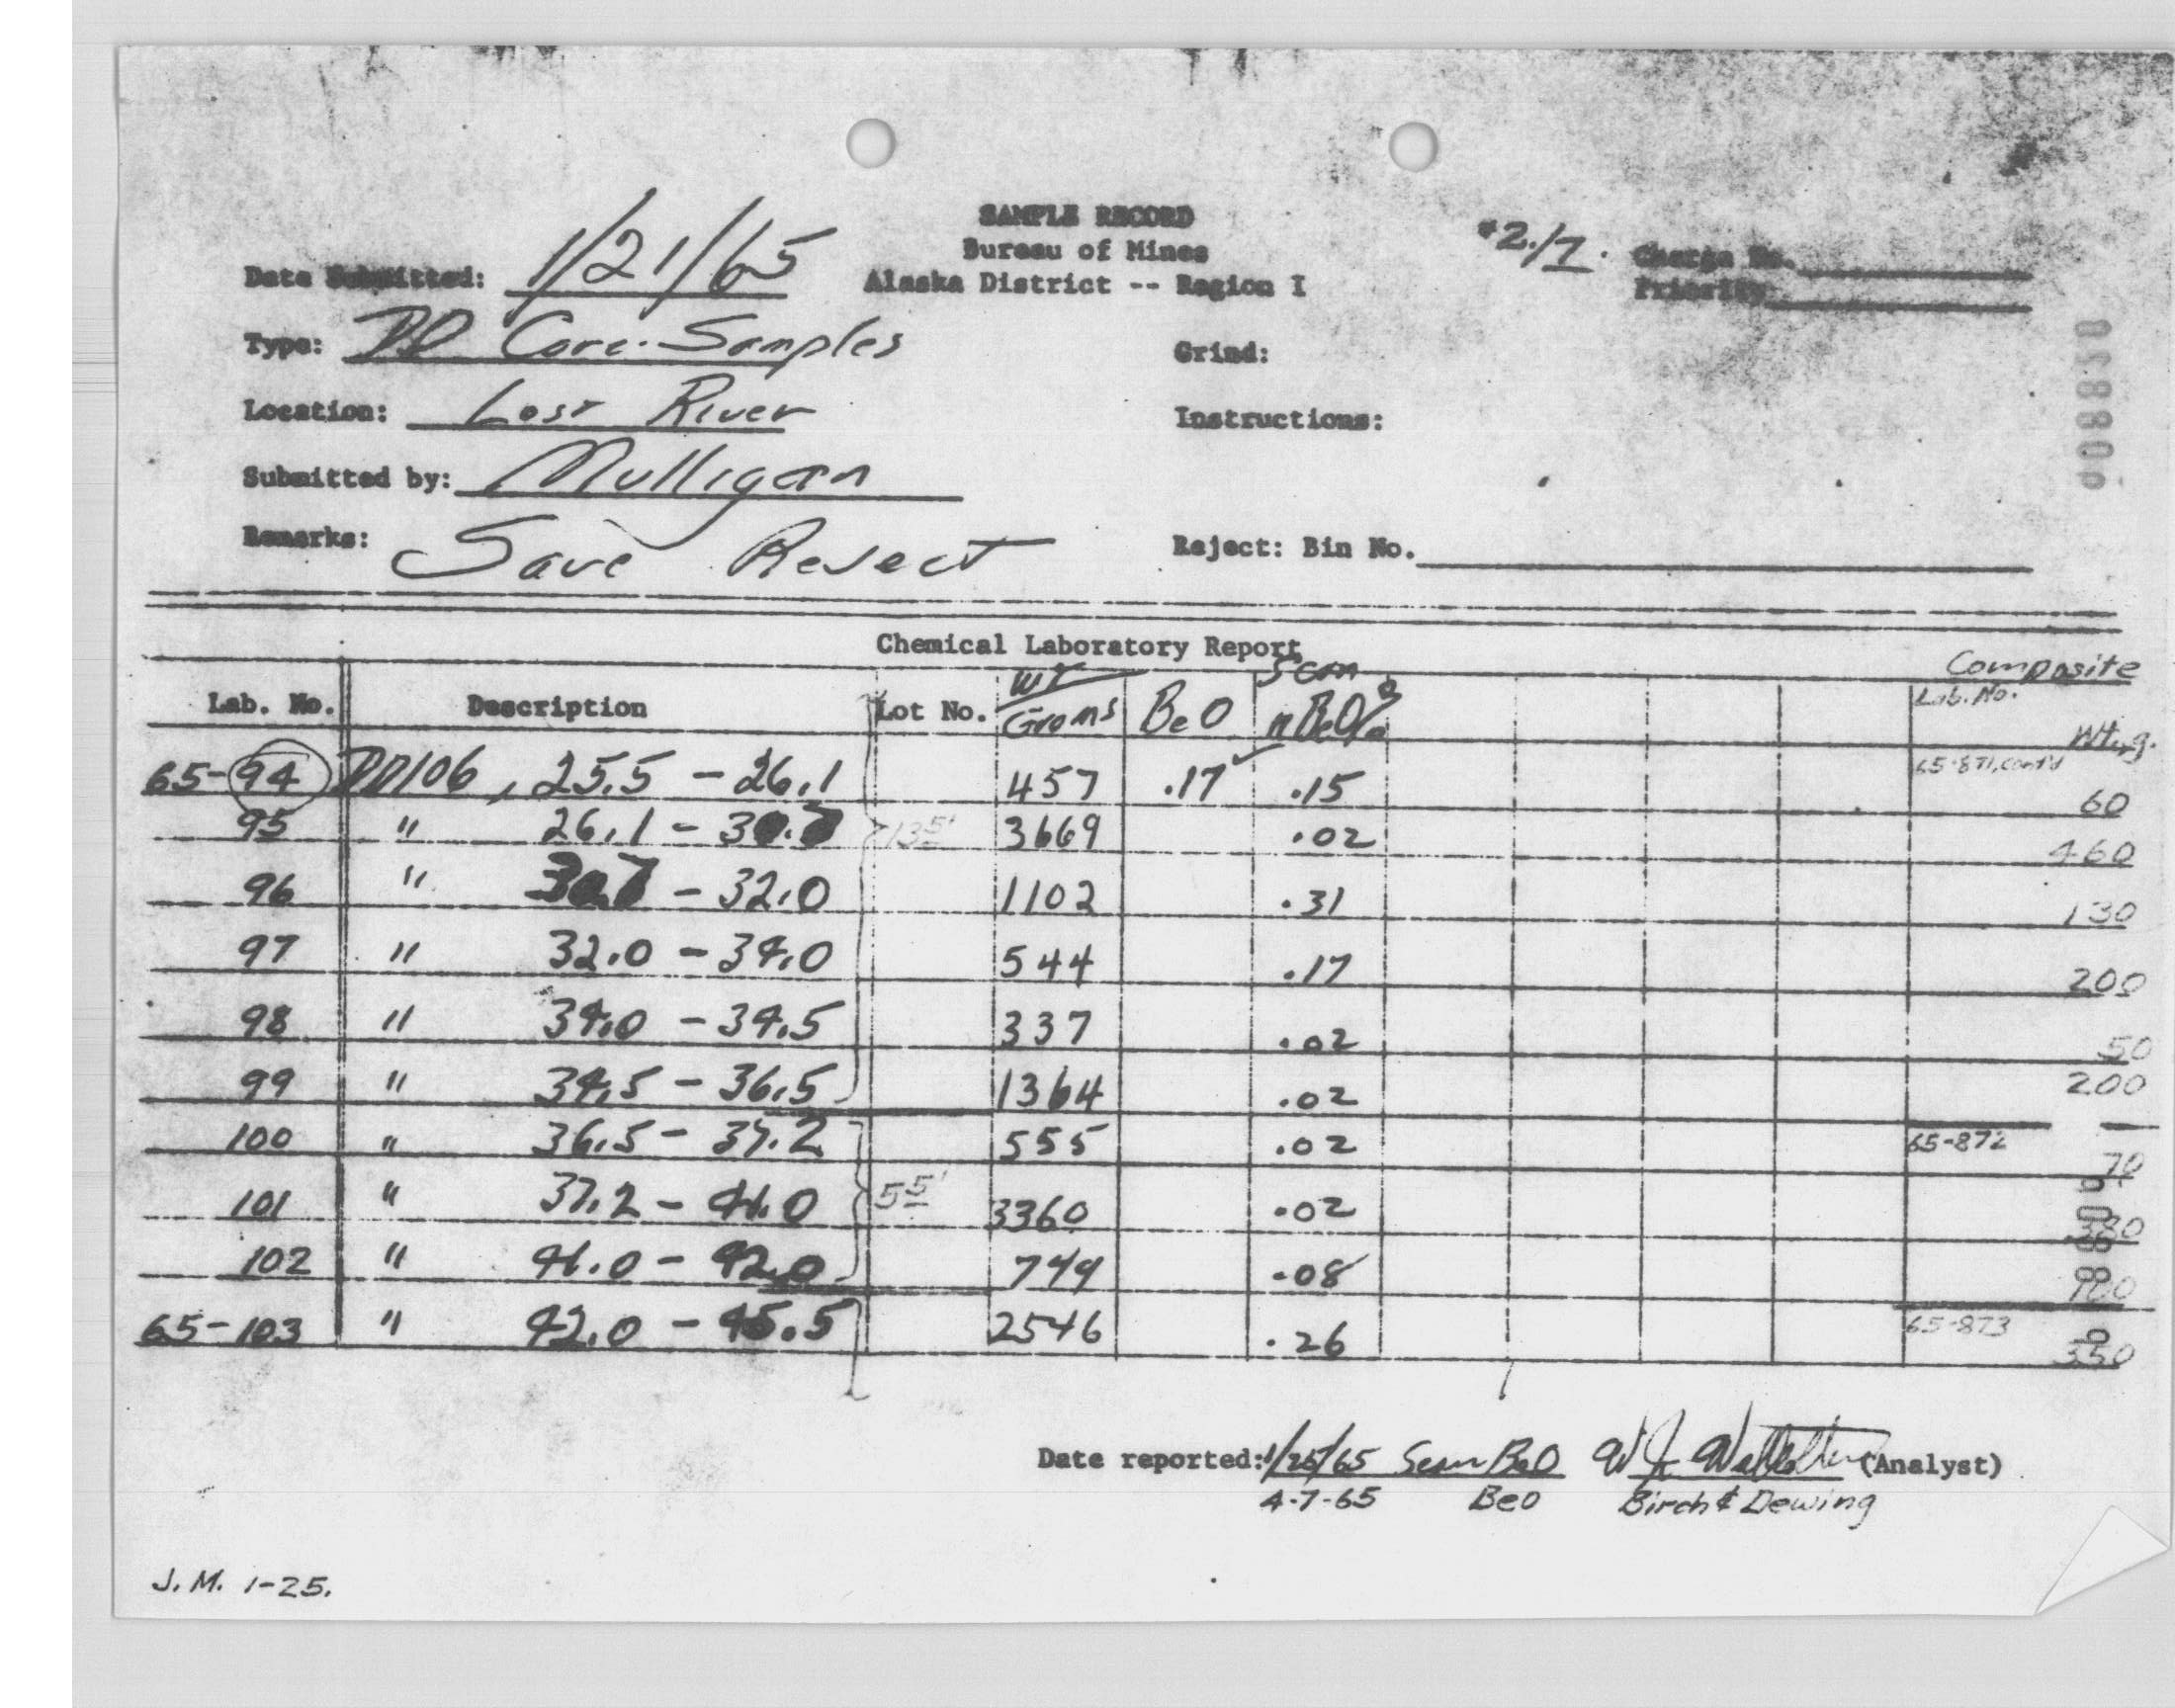 SAMPLE RECORD
Bureau of Mines
Alaska District -- Region I
#2./7.
Charge No.
Priority
Date Submitted: 1/21/65
Type: DD Core Samples
Grind:
Location: Lost River
Instructions:
Submitted by: Mulligan
Remarks: Save Reject
Reject: Bin No.
028806
Chemical Laboratory Report
Composite
Lab. No. Description Lot No. Wt Grams BeO Scan nBeO% Lab. No. Wt., g.
65-94 DD106, 25.5 - 26.1 457 .17 ✓ .15 65-871, cont'd 60
95 " 26.1 - 30.7 13 5' 3669 .02 460
96 " 30.7 - 32.0 1102 .31 130
97 " 32.0 - 34.0 544 .17 200
98 " 34.0 - 34.5 337 .02 50
99 " 34.5 - 36.5 1364 .02 200
100 " 36.5 - 37.2 555 .02 65-872 70
101 " 37.2 - 41.0 5 5' 3360 .02 380
102 " 41.0 - 42.0 749 .08
65-103 " 42.0 - 45.5 2546 .26 65-873 350
Date reported: 1/25/65 Scan BeO (Analyst)
4-7-65 BeO Birch & Dewing
J.M. 1-25.